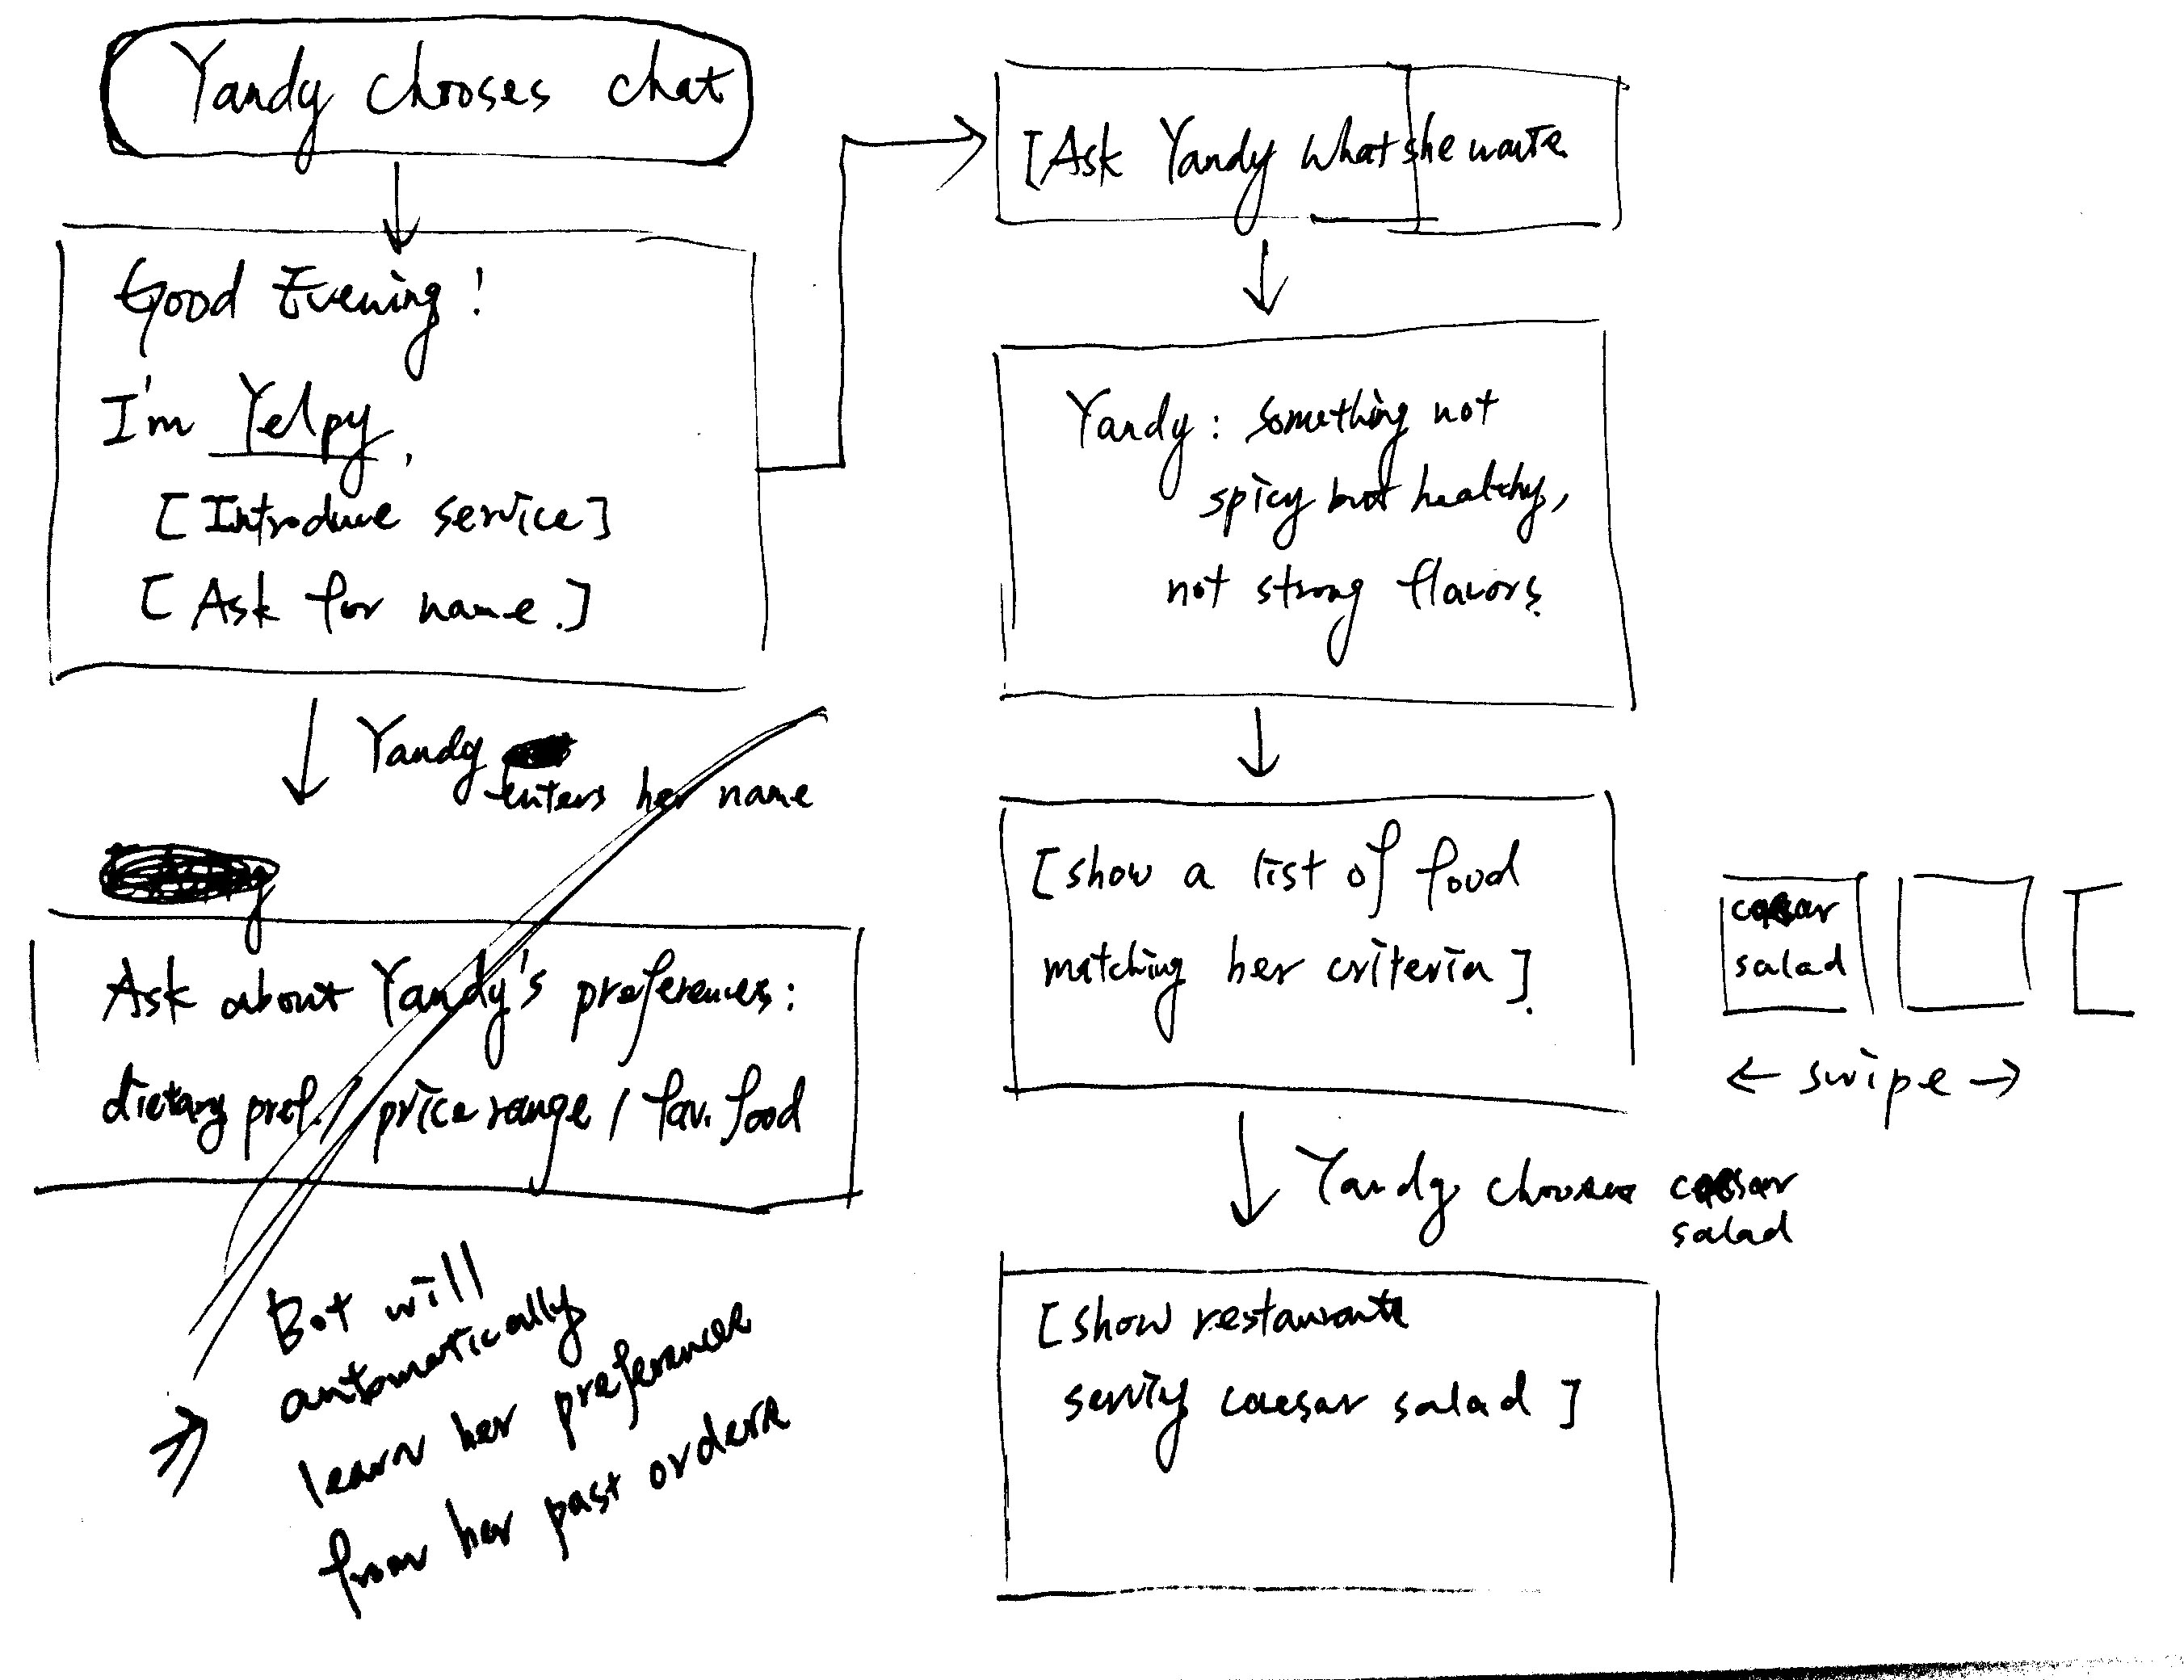 Yandy chooses chat
Good Evening!
I'm Yelpy,
[Introduce service]
[Ask for name.]
Yandy
enters her name
Ask about Yandy's preferences:
dietary pref. / price range / fav. food
Bot will
automatically
learn her preferences
from her past orders
[Ask Yandy what she wants
Yandy: something not
spicy but healthy,
not strong flavors.
[show a list of food
matching her criteria].
caesar
salad
← swipe →
Yandy chooses caesar
salad
[show restaurants
serving caesar salad]